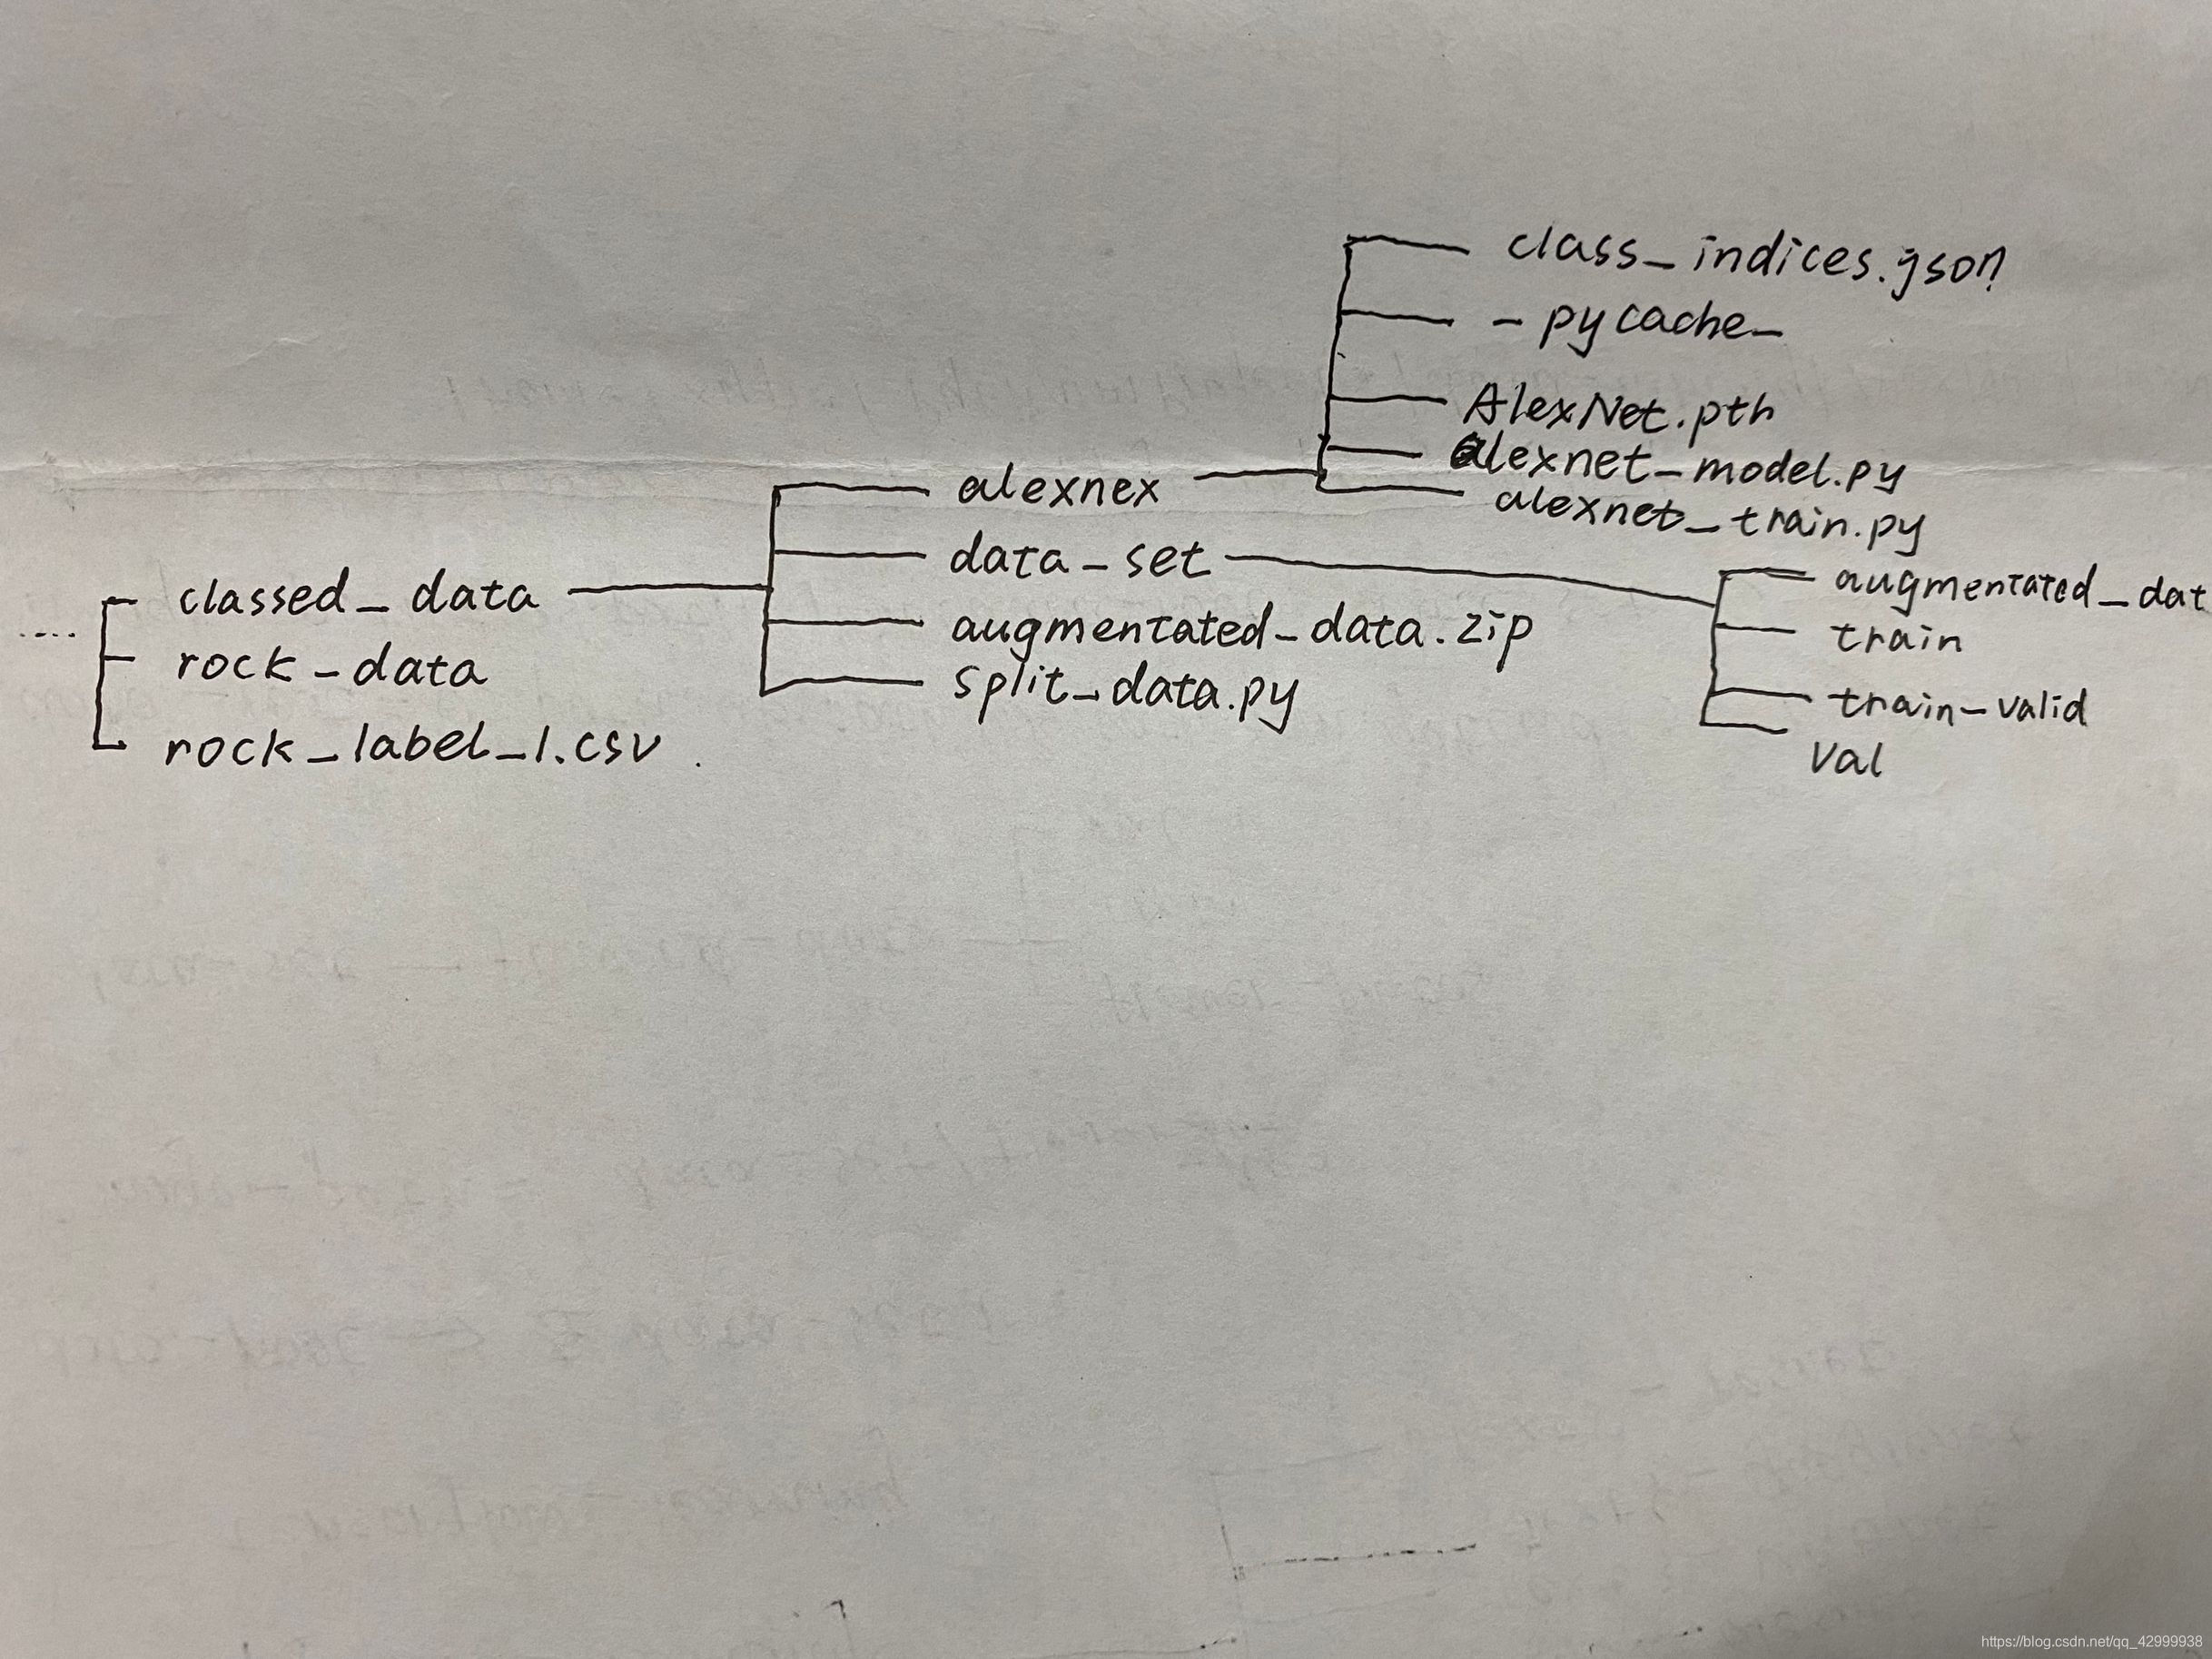 class_indices.json
-pycache_
AlexNet.pth
alexnet_model.py
alexnex
alexnet_train.py
data_set
classed_data
augmentated_dat
augmentated_data.zip
train
rock_data
split_data.py
train-valid
rock_label_1.csv
val
https://blog.csdn.net/qq_42999938